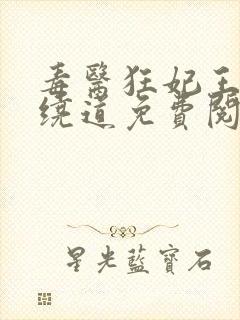 毒醫狂妃王
繞道免費閱
星光藍寶石